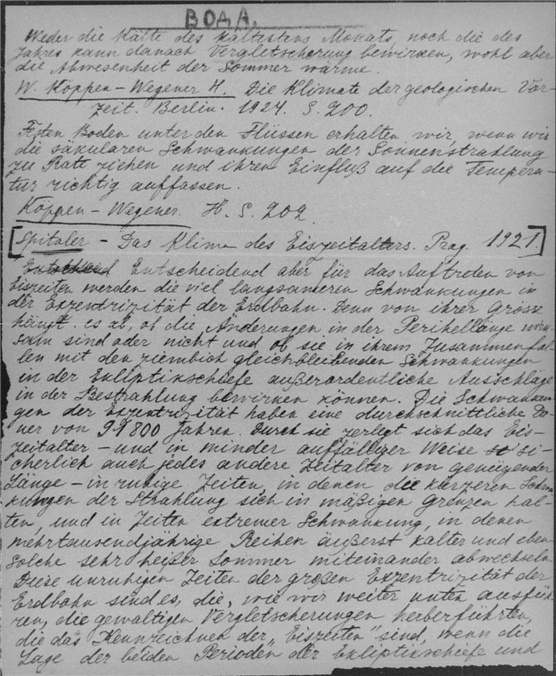 ВОДА.
Weder die Kälte des kältesten Monats, noch die des
Jahres kann danach Vergletscherung bewirken, wohl aber
die Abwesenheit der Sommer wärme.
W. Köppen - Wegener A. Die Klimate der geologischen Vor-
zeit. Berlin. 1924. S. 200.
Festen Boden unter den Flüssen erhalten wir, wenn wir
die säkularen Schwankungen der Sonnenstrahlung
zu Rate ziehen und ihren Einfluß auf die Tempera-
tur richtig auffassen.
Köppen - Wegener. S. 202.
[Spitaler - Das Klima des Eiszeitalters. Prag. 1921]
Entscheidend aber für das Auftreten von
Eiszeiten werden die viel langsameren Schwankungen in
der Exzentrizität der Erdbahn. Denn von ihrer Grösse
hängt es ab, ob die Änderungen in der Perihellänge wirk-
sam sind oder nicht und ob sie in ihrem Zusammenfal-
len mit den ziemlich gleichbleibenden Schwankungen
in der Ekliptikschiefe außerordentliche Ausschläge
in der Bestrahlung bewirken können. Die Schwankun-
gen der Exzentrizität haben eine durchschnittliche Dau-
er von 91800 Jahren. Durch sie zerlegt sich das Eis-
zeitalter - und in minder auffälliger Weise si-
cherlich auch jedes andere Zeitalter von genügender
Länge - in ruhige Zeiten, in denen die kürzeren Schwan-
kungen der Strahlung sich in mäßigen Grenzen hal-
ten, und in Zeiten extremer Schwankung, in denen
mehrtausendjährige Reihen äußerst kalter und eben
solche sehr heißer Sommer miteinander abwechseln.
Diese unruhigen Zeiten der großen Exzentrizität der
Erdbahn sind es, die, wie wir weiter unten ausfüh-
ren, die gewaltigen Vergletscherungen herbeiführten,
die das Kennzeichnen der „Eiszeiten" sind, wenn die
Lage der beiden Perioden der Ekliptikschiefe und